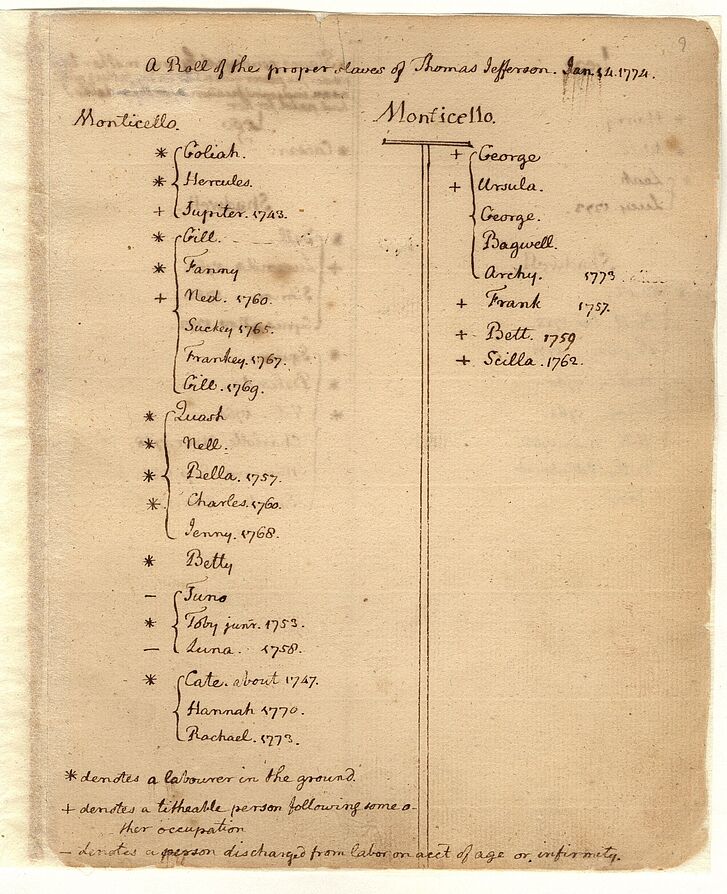 A Roll of the proper slaves of Thomas Jefferson. Jan. 14. 1774.
Monticello.
* Goliah.
* Hercules.
+ Jupiter. 1743.
* Gill.
* Fanny
+ Ned. 1760.
Suckey 1765.
Frankey. 1767.
Gill. 1769.
* Quash
* Nell.
* Bella. 1757.
* Charles. 1760.
Jenny. 1768.
* Betty
– Juno
* Toby junr. 1753.
– Luna. 1758.
* Cate. about 1747.
Hannah 1770.
Rachael. 1773.
Monticello.
+ George
+ Ursula.
George.
Bagwell.
Archy. 1773
+ Frank 1757.
+ Bett. 1759
+ Scilla. 1762.
* denotes a labourer in the ground.
+ denotes a titheable person following some o-
ther occupation
– denotes a person discharged from labor on acct of age or infirmity.